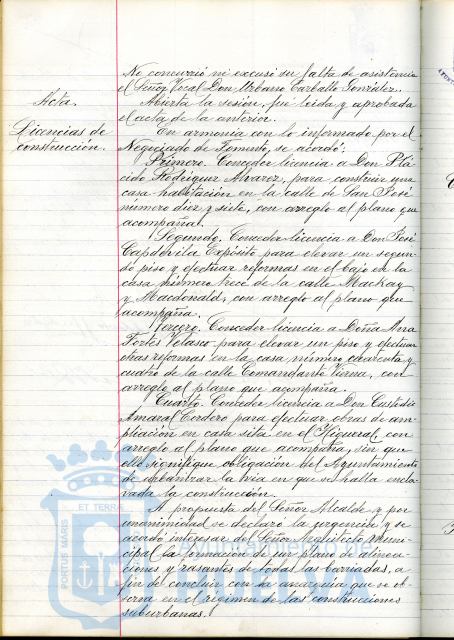 No concurrió ni excusó su falta de asistencia
el Señor Vocal Don Urbano Carballo González.
Acta.
Abierta la sesión, fué leida y aprobada
el acta de la anterior.
Licencias de
construcción.
En armonia con lo informado por el
Negociado de Fomento, se acordó:
Primero. Conceder licencia a Don Plá-
cido Rodríguez Alvarez, para construir una
casa habitación en la calle de San José
número diez y siete, con arreglo al plano que
acompaña.
Segundo. Conceder licencia a Don José
Capdevila Expósito para elevar un segun-
do piso y efectuar reformas en el bajo en la
casa número trece de la calle Mackay
y Macdonald, con arreglo al plano que
acompaña.
Tercero. Conceder licencia a Doña Ana
Fortes Velasco para elevar un piso y efectuar
otras reformas en la casa número cuarenta y
cuatro de la calle Comandante Vierna, con
arreglo al plano que acompaña.
Cuarto. Conceder licencia a Don Custodio
Amaral Cordero para efectuar obras de am-
pliación en casa sita en el Higueral, con
arreglo al plano que acompaña, sin que
ello signifique obligación del Ayuntamiento
de urbanizar la via en que se halla encla-
vada la construcción.
A propuesta del Señor Alcalde y por
unanimidad se declaró la urgencia y se
acordó interesar del Señor Arquitecto Muni-
cipal la formación de un plano de alinea-
ciones y rasantes de todas las barriadas, a
fin de concluir con la anarquia que se ob-
serva en el régimen de las construcciones
suburbanas.
PORTUS MARIS
ET TERRA